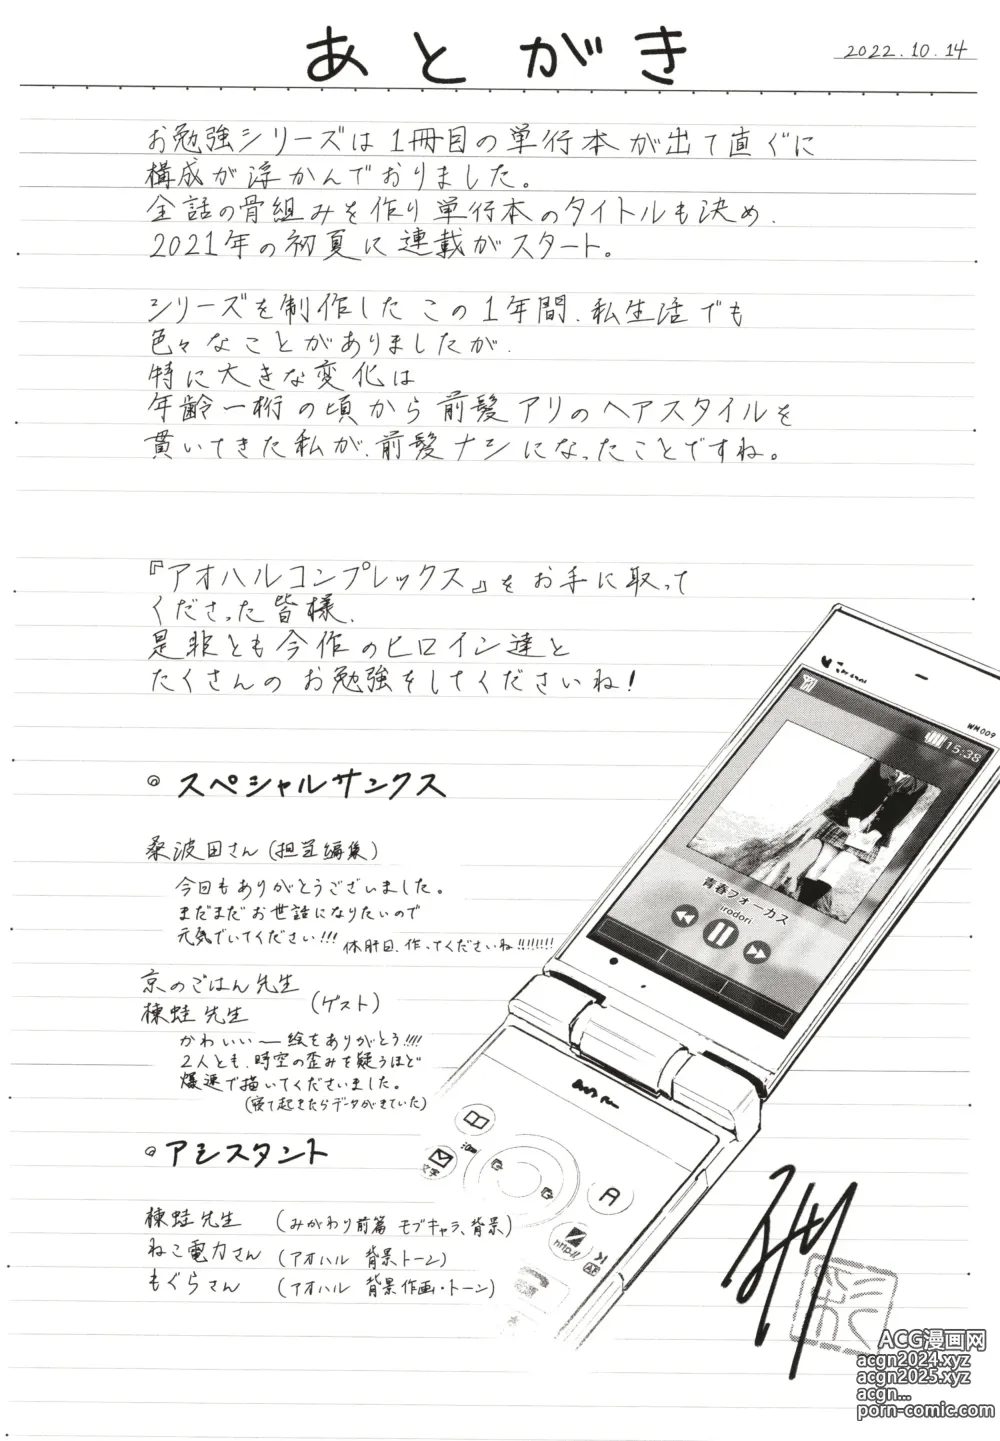 あとがき
2022.10.14
お勉強シリーズは1冊目の単行本が出て直ぐに
構成が浮かんでおりました。
全話の骨組みを作り単行本のタイトルも決め、
2021年の初夏に連載がスタート。
シリーズを制作したこの1年間、私生活でも
色々なことがありましたが、
特に大きな変化は
年齢一桁の頃から前髪アリのヘアスタイルを
貫いてきた私が、前髪ナシになったことですね。
『アオハルコンプレックス』をお手に取って
くださった皆様、
是非とも今作のヒロイン達と
たくさんのお勉強をしてくださいね!
スペシャルサンクス
桑波田さん(担当編集)
今回もありがとうございました。
まだまだお世話になりたいので
元気でいてください!!! 休肝日、作ってくださいね!!!!!!!!
京のごはん先生
棟蛙先生
(ゲスト)
かわいい〜絵をありがとう!!!!
2人とも、時空の歪みを疑うほど
爆速で描いてくださいました。
(寝て起きたらデータがきていた)
アシスタント
棟蛙先生 (みがわり前篇 モブキャラ、背景)
ねこ電力さん (アオハル 背景トーン)
もぐらさん (アオハル 背景作画・トーン)
WM009
15:38
青春フォーカス
irodori
文字
A
http://
AF
ACG漫画网
acgn2024.xyz
acgn2025.xyz
acgn...
porn-comic.com